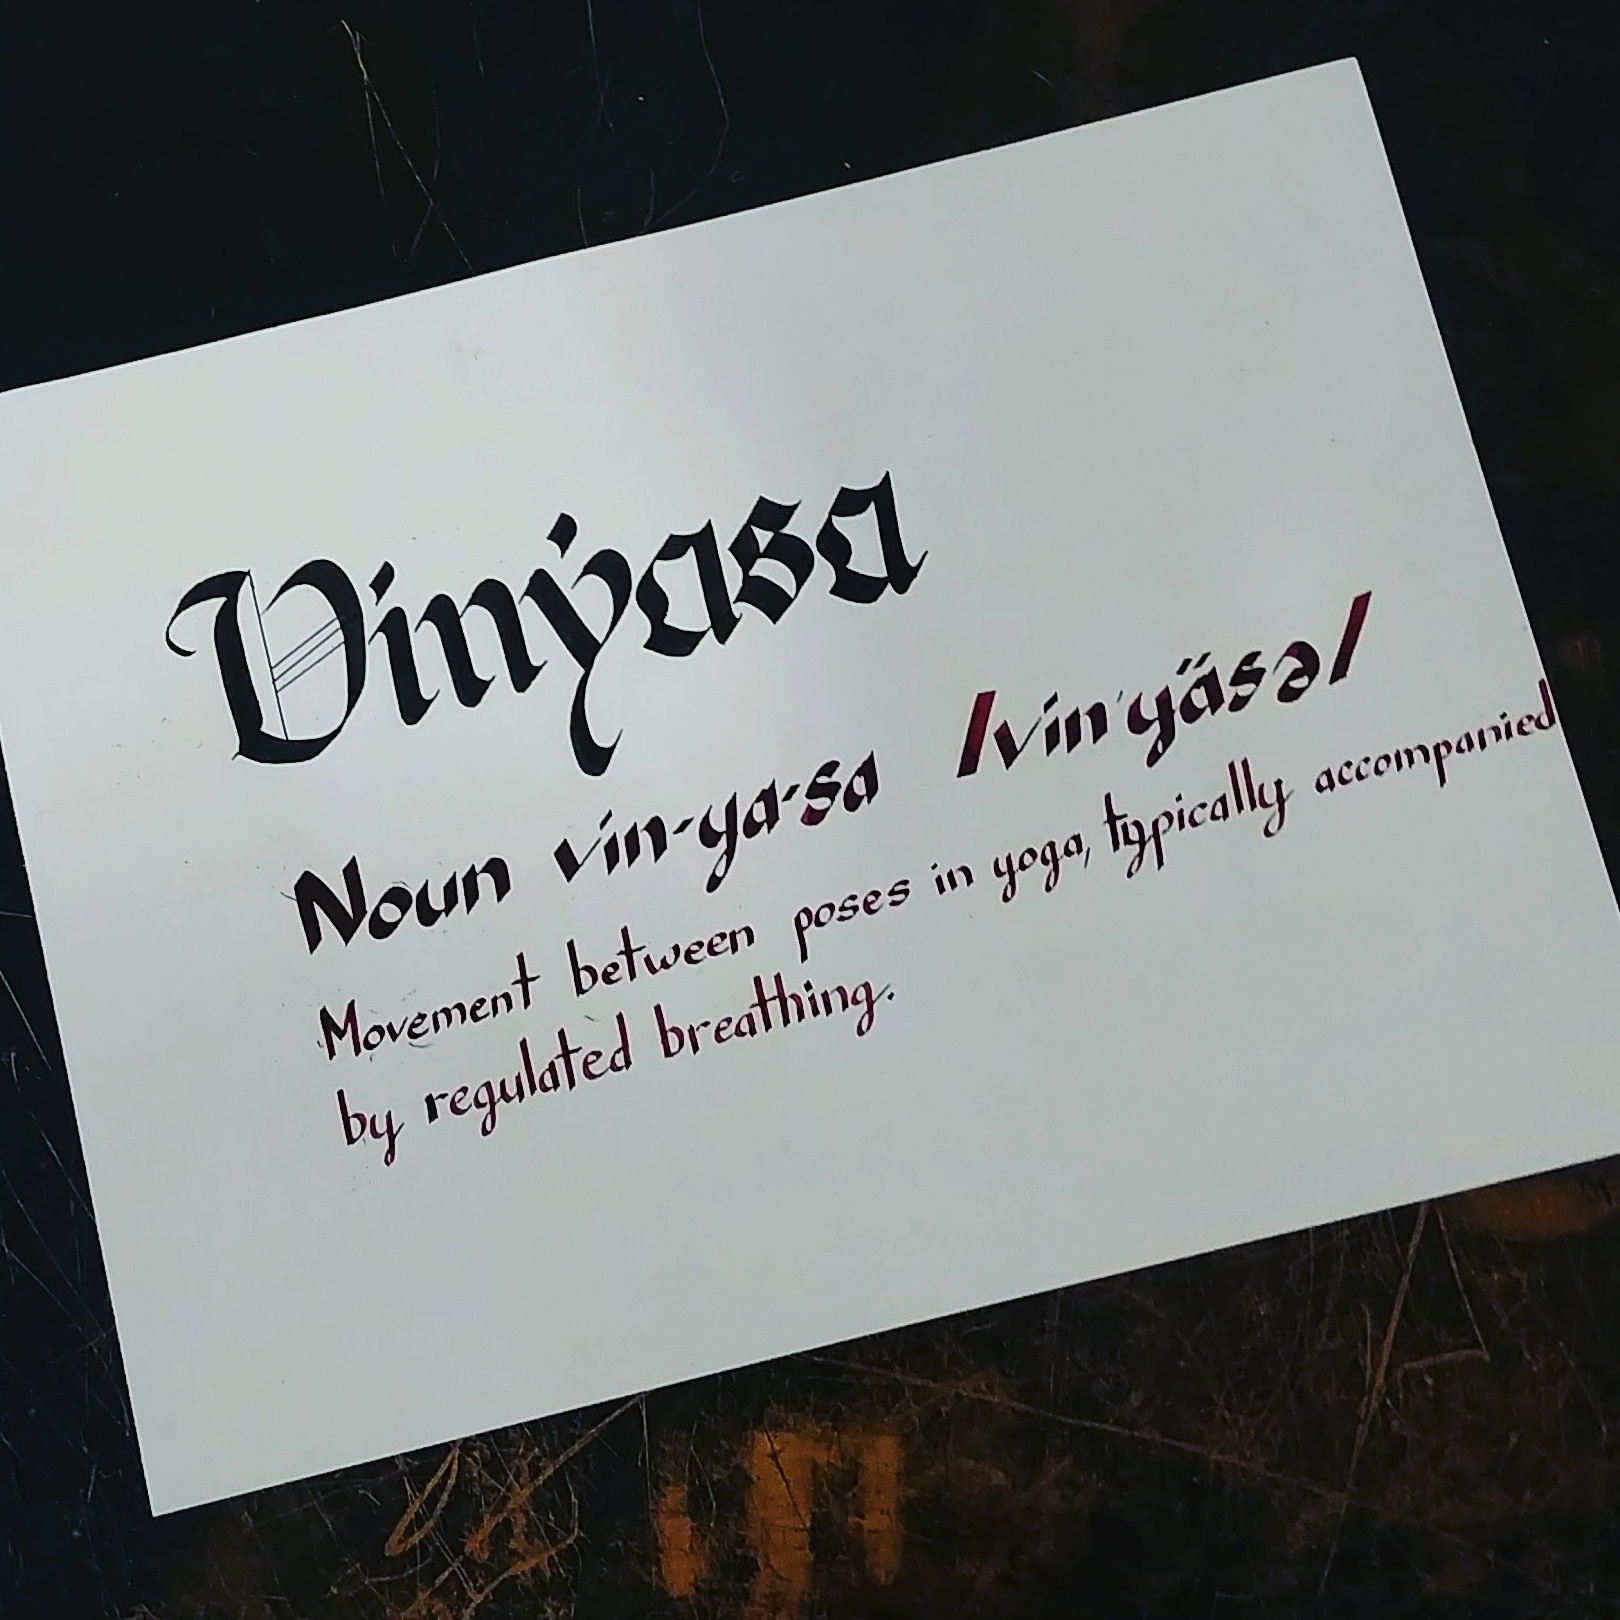 Vinyasa
Noun vin-ya-sa /vin'yäsə/
Movement between poses in yoga, typically accompanied
by regulated breathing.